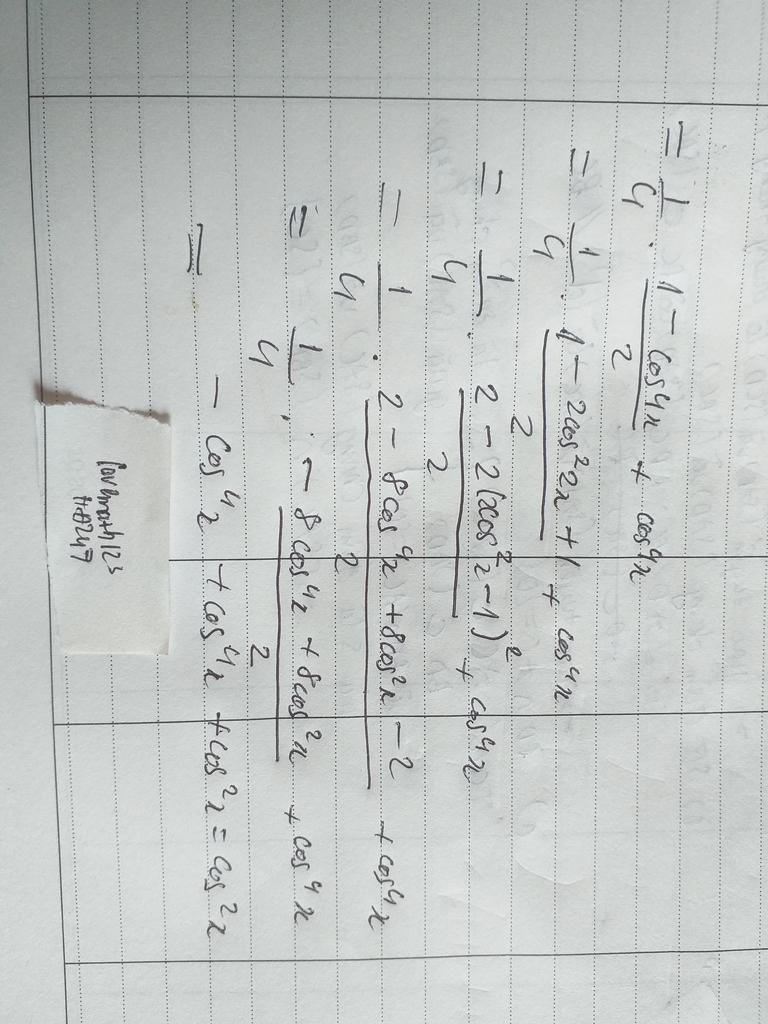 = 1/4 · (1 - cos4x)/2 + cos⁴x
= 1/4 · (1 - 2cos²2x + 1)/2 + cos⁴x
= 1/4 · (2 - 2(2cos²x - 1)²)/2 + cos⁴x
= 1/4 · (2 - 8cos⁴x + 8cos²x - 2)/2 + cos⁴x
= 1/4 · (-8cos⁴x + 8cos²x)/2 + cos⁴x
= - cos⁴x + cos⁴x + cos²x = cos²x